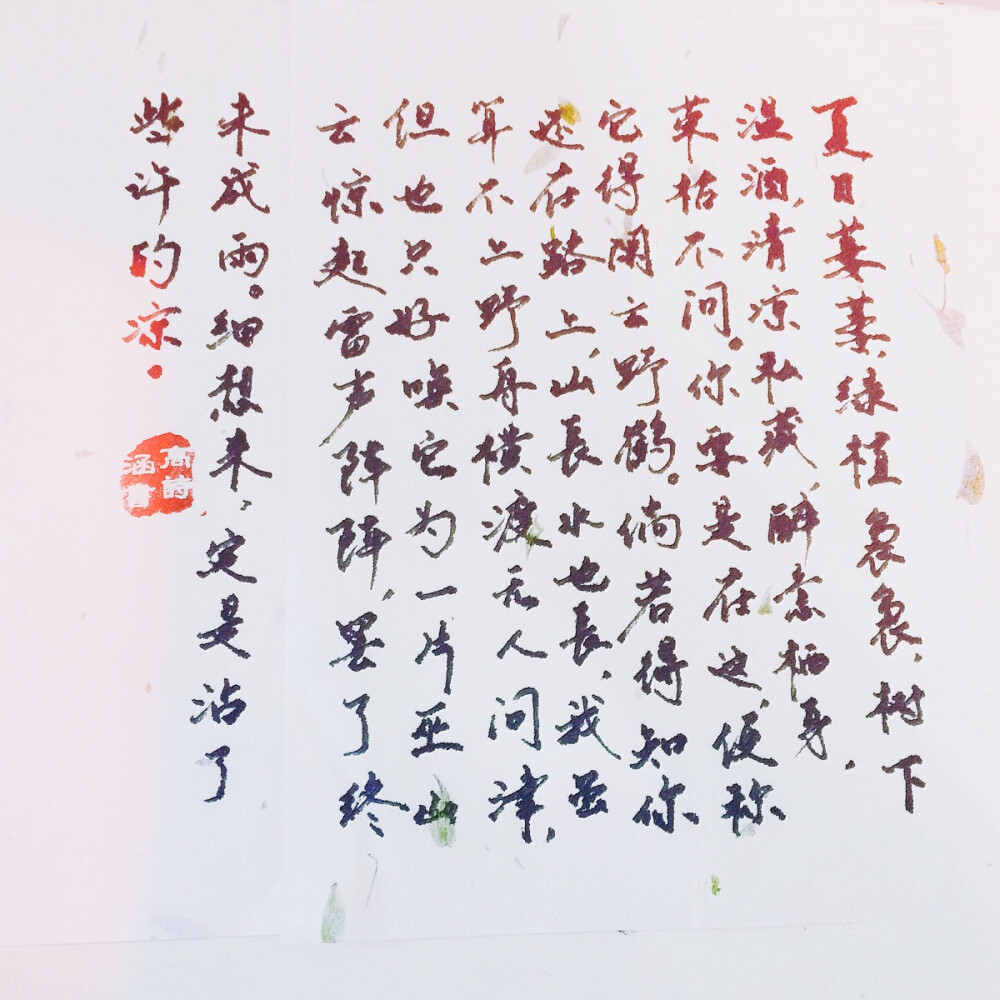 夏日萋萋，绿植袅袅，树下
温酒，清凉私藏，醉索栖身，
荣枯不问。你要是在这，便称
它得闲云野鹤。倘若得知你
还在路上，山長水也長，我虽
算不上野舟横渡无人问津，
但也只好唤它为一片巫山
云惊起雷声阵阵，罢了终
未成雨。细想来，定是沾了
些许的凉。
高诗
涵書